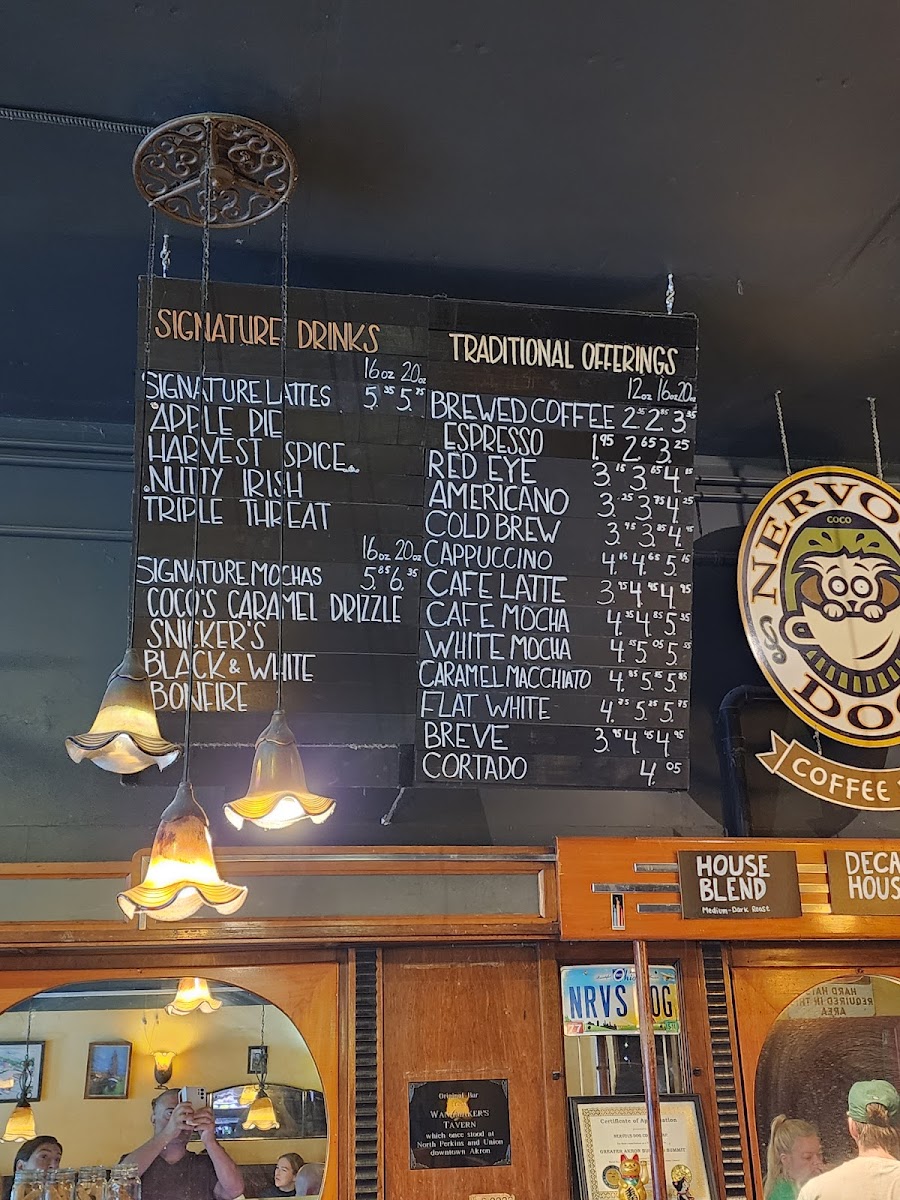 SIGNATURE DRINKS
16oz 20oz
SIGNATURE LATTES 5.35 5.75
APPLE PIE
HARVEST SPICE
NUTTY IRISH
TRIPLE THREAT
16oz 20oz
SIGNATURE MOCHAS 5.85 6.35
COCO'S CARAMEL DRIZZLE
SNICKER'S
BLACK & WHITE
BONFIRE
TRADITIONAL OFFERINGS
12oz 16oz 20oz
BREWED COFFEE 2.35 2.85 3.35
ESPRESSO 1.95 2.65 3.25
RED EYE 3.15 3.65 4.15
AMERICANO 3.25 3.75 4.25
COLD BREW 3. 3.85 4.
CAPPUCCINO 4. 4.65 5.15
CAFE LATTE 3.95 4.45 4.95
CAFE MOCHA 4.35 4.85 5.35
WHITE MOCHA 4.55 5.05 5.55
CARAMEL MACCHIATO 4.85 5. 5.85
FLAT WHITE 4. 5.25 5.75
BREVE 3.95 4.45 4.95
CORTADO 4.05
NERVO
COCO
DO
COFFEE
HOUSE
BLEND
Medium-Dark Roast
DECA
HOUS
Ohio
NRVS OG
27
Original Bar
WANAMAKER'S
TAVERN
which once stood at
North Perkins and Union
downtown Akron
Certificate of Appreciation
HARD HAT
REQUIRED IN THIS
AREA